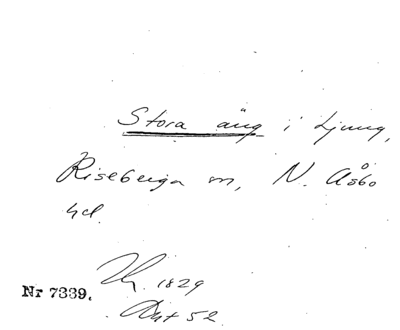 Stora äng i Ljung,
Riseberga sn, N. Åsbo
hd.
1829
Nr 7339.
Akt 52